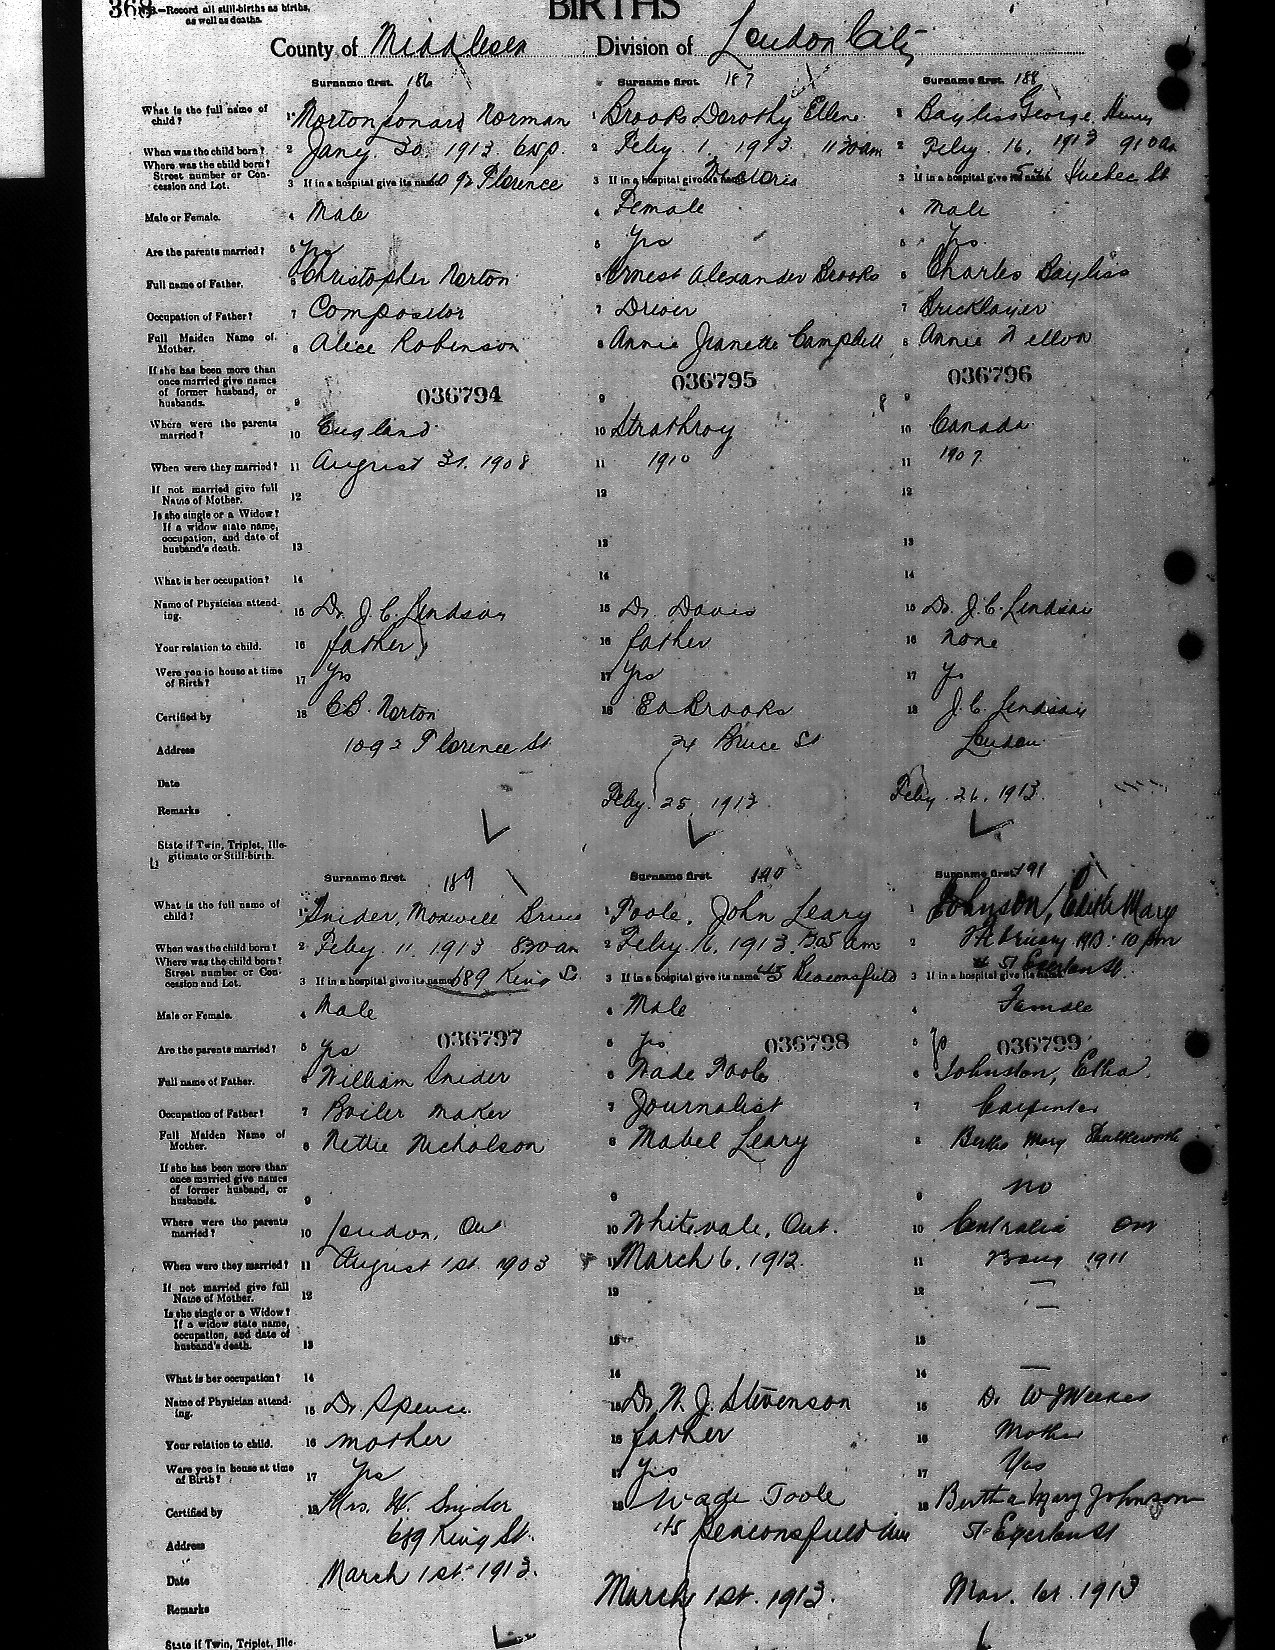 368
N.B.—Record all still-births as births,
as well as deaths.
BIRTHS
County of Middlesex Division of London City
Surname first. 186 Surname first. 187 Surname first. 188
What is the full name of
child? 1 Norton Lonard Norman 1 Brooks Dorothy Ellene 1 Bayliss George Henry
When was the child born? 2 Jany. 30. 1913 2 Feby. 1. 1913 1130am 2 Feby. 16. 1913 910am
Where was the child born?
Street number or Con-
cession and Lot. 3 If in a hospital give its name 1092 Florence 3 If in a hospital give its name Victoria 3 If in a hospital give its name Quebec St
Male or Female. 4 Male 4 Female 4 Male
Are the parents married? 5 Yes 5 Yes 5 Yes
Full name of Father. 6 Christopher Norton 6 Ernest Alexander Brooks 6 Charles Bayliss
Occupation of Father? 7 Compositor 7 Driver 7 Bricklayer
Full Maiden Name of
Mother. 8 Alice Robinson 8 Annie Jeanette Campbell 8 Annie
If she has been more than
once married give names
of former husband, or
husbands. 9 036794 9 036795 9 036796
Where were the parents
married? 10 England 10 Strathroy 10 Canada
When were they married? 11 August 31. 1908 11 1910 11 1907
If not married give full
Name of Mother. 12 12 12
Is she single or a Widow?
If a widow state name,
occupation, and date of
husband's death. 13 13 13
What is her occupation? 14 14 14
Name of Physician attend-
ing. 15 Dr. J. C. Lindsay 15 Dr. Davis 15 Dr. J. C. Lindsay
Your relation to child. 16 father 16 father 16 none
Were you in house at time
of Birth? 17 Yes 17 Yes 17 Yes
Certified by 18 C B. Norton 18 E A Brooks 18 J. C. Lindsay
Address 1092 Florence St 24 Bruce St London
Date Feby. 25, 1913 Feby. 26, 1913.
Remarks
State if Twin, Triplet, Ille-
gitimate or Still-birth.
Surname first. 189 Surname first. 190 Surname first. 191
What is the full name of
child? 1 Snider, Maxwell Bruce 1 Toole, John Leary 1 Johnson, Edith Mary
When was the child born? 2 Feby. 11. 1913 830am 2 Feby 16. 1913. am 2 February 1913. 10 pm
Where was the child born?
Street number or Con-
cession and Lot. 3 If in a hospital give its name 689 King St 3 If in a hospital give its name 45 Beaconsfield 3 If in a hospital give its name 51 Egerton St.
Male or Female. 4 Male 4 Male 4 Female
Are the parents married? 5 Yes 036797 5 Yes 036798 5 Yes 036799
Full name of Father. 6 William Snider 6 Wade Toole 6 Johnston,
Occupation of Father? 7 Boiler Maker 7 Journalist 7 Carpenter
Full Maiden Name of
Mother. 8 Nettie Nicholson 8 Mabel Leary 8 Bertha Mary
If she has been more than
once married give names
of former husband, or
husbands. 9 9 9 no
Where were the parents
married? 10 London, Ont 10 Whitevale, Ont. 10 Centralia Ont
When were they married? 11 August 1st. 1903 11 March 6. 1912. 11 1911
If not married give full
Name of Mother. 12 12 12 —
Is she single or a Widow?
If a widow state name,
occupation, and date of
husband's death. 13 13 13 —
What is her occupation? 14 14 14 —
Name of Physician attend-
ing. 15 Dr. Spence 15 Dr. W. J. Stevenson 15 Dr W J Weekes
Your relation to child. 16 mother 16 father 16 Mother
Were you in house at time
of Birth? 17 Yes 17 Yes 17 Yes
Certified by 18 Mrs. W. Snider 18 Wade Toole 18 Bertha Mary Johnson
Address 689 King St. 45 Beaconsfield Ave 51 Egerton St
Date March 1st. 1913. March 1st. 1913. Mar. 1st. 1913
Remarks
State if Twin, Triplet, Ille-